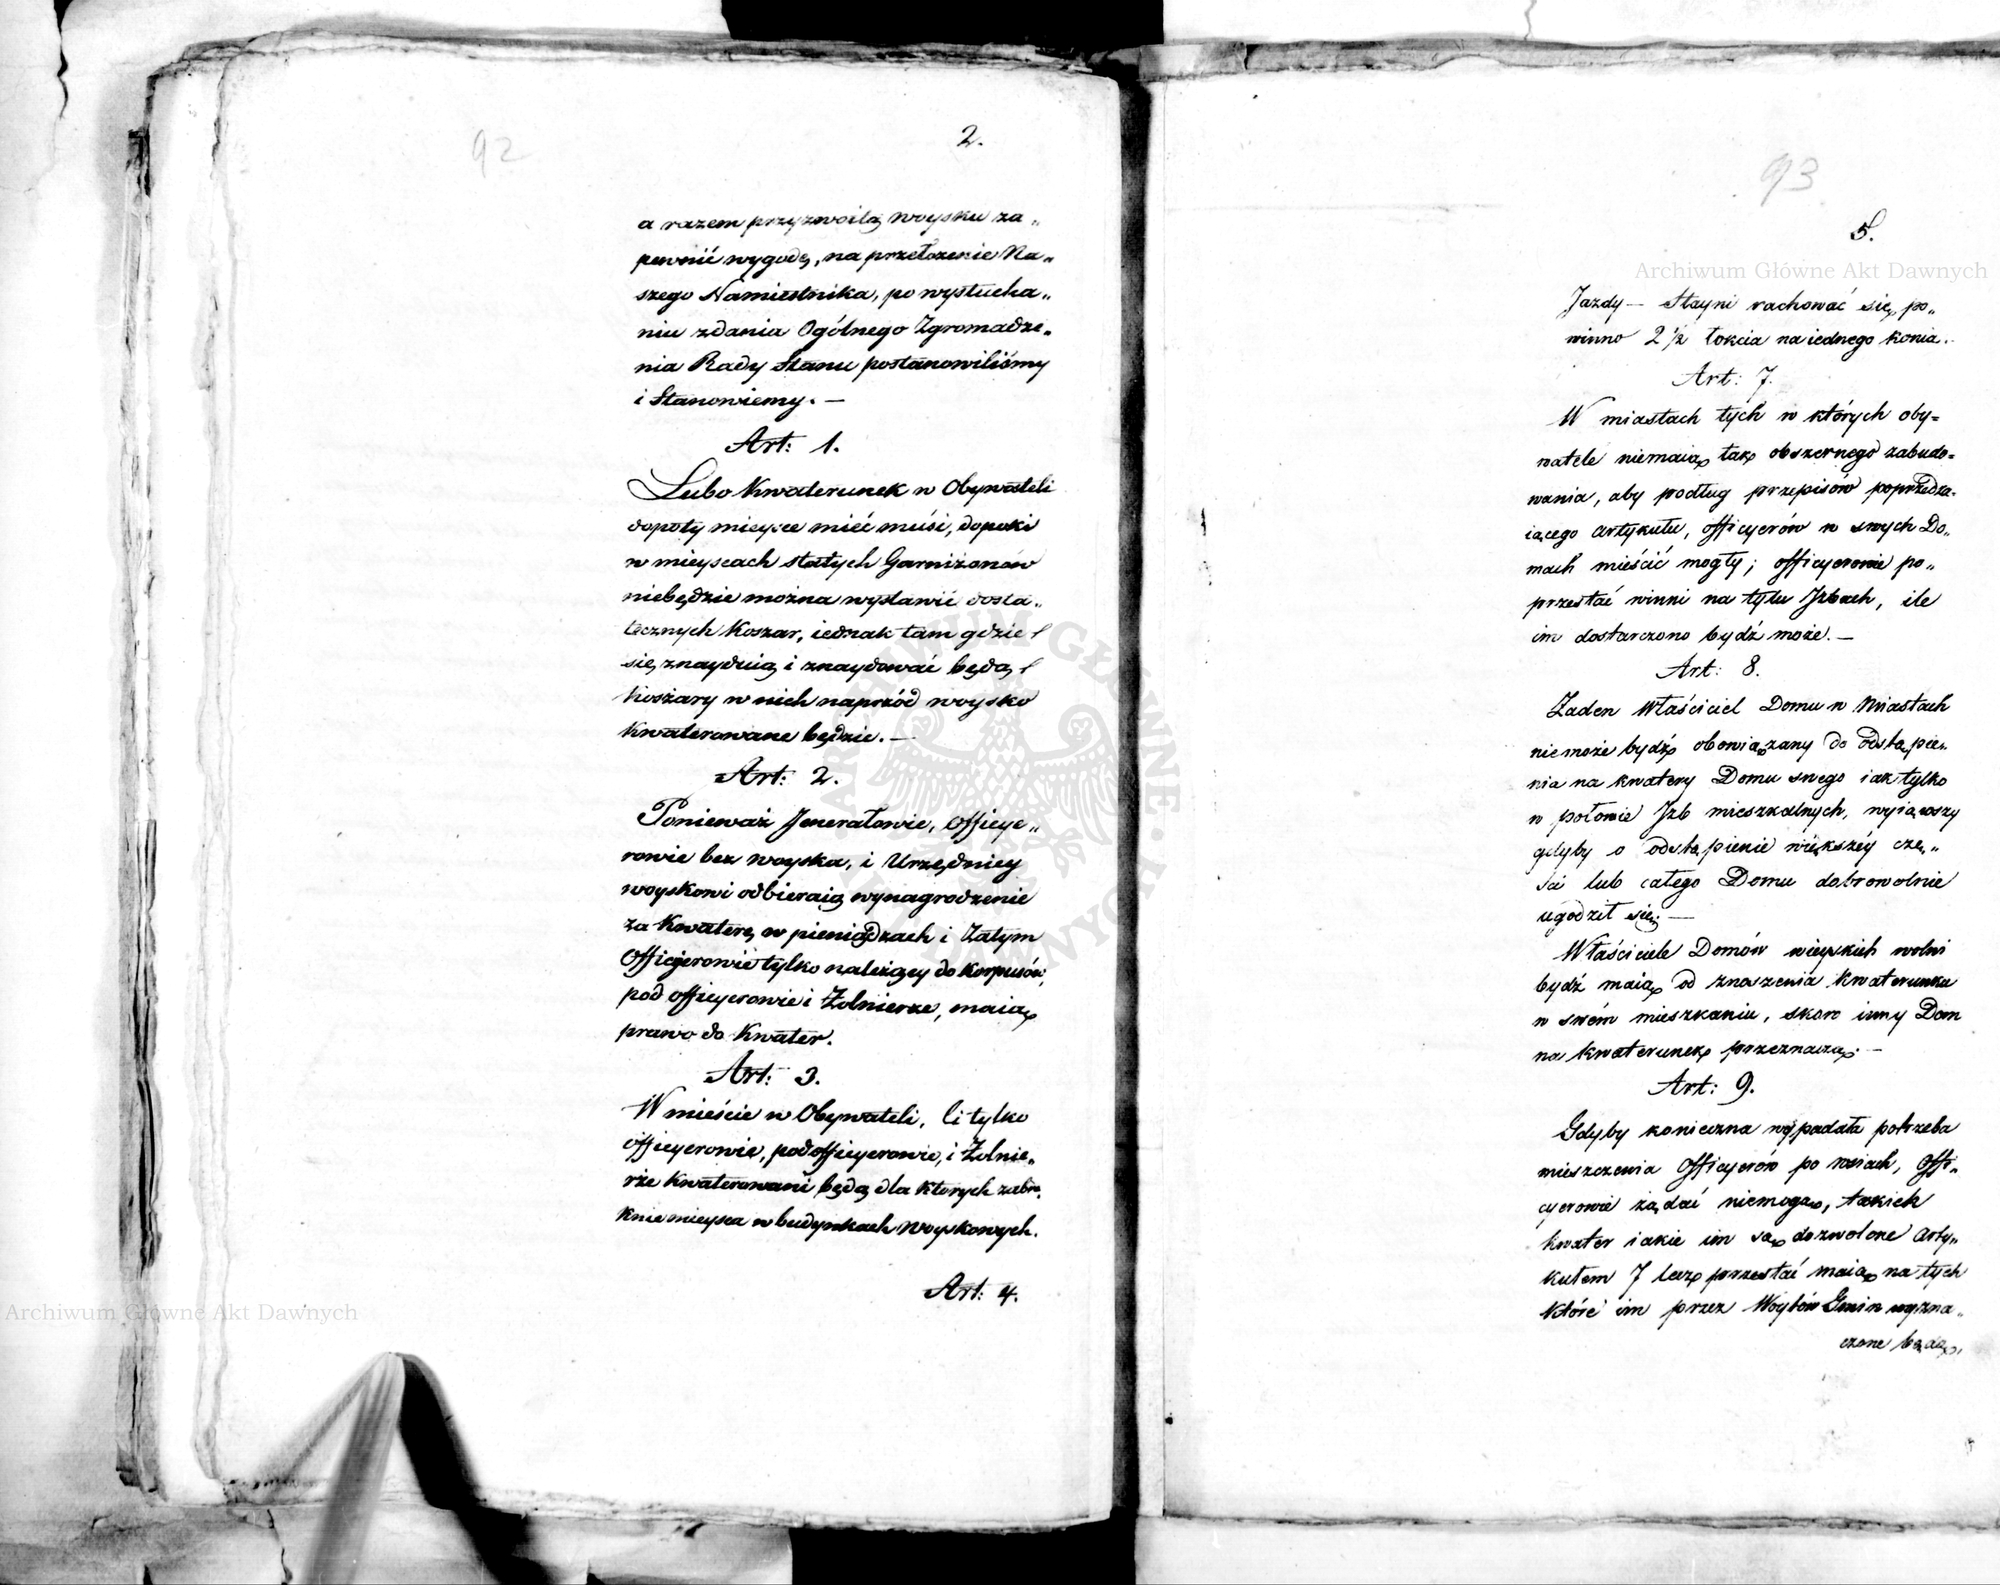 92
2.
a razem przyzwoitą woysku za„
pewnić wygodę, na przełożenie Na„
szego Namiestnika, po wysłucha„
niu zdania Ogólnego Zgromadze„
nia Rady Stanu postanowiliśmy
i Stanowiemy. —
Art: 1.
Lubo Kwaterunek w Obywateli
dopoty mieysce mieć musi, dopoki
w mieyscach stałych Garnizonów
niebędzie można wystawić dosta„
tecznych Koszar, iednak tam gdzie
się znayduią i znaydować będą
Koszary w nich naprzód woysko
Kwaterowane będzie. —
Art: 2.
Ponieważ Jenerałowie, Officye„
rowie bez woyska, i Urzędnicy
woyskowi odbieraią wynagrodzenie
za Kwaterę w pieniądzach i Zatym
Officyerowie tylko należący do Korpusów,
pod officyerowie i Żołnierze, maią
prawo do Kwater.
Art: 3.
W mieście w Obywateli, li tylko
officyerowie, podofficyerowie, i Żołnie„
rze Kwaterowani będą dla ktorych zabra„
knie mieysca w budynkach Woyskowych.
Art: 4.
93
5.
Jazdy — Stayni rachować się po„
winno 2 1/2 łokcia na iednego konia.
Art: 7.
W miastach tych w których oby=
watele niemaią tak obszernego zabudo=
wania, aby podług przepisów poprzedza-
iącego artykułu, officyerów w swych Do„
mach mieścić mogły; officyerowie po„
przestać winni na tylu Izbach, ile
im dostarczono bydź może. —
Art: 8.
Żaden Właściciel Domu w Miastach
niemoże bydź obowiązany do odstąpie„
nia na kwatery Domu swego iak tylko
w połowie Izb mieszkalnych, wyiąwszy
gdyby o odstąpienie większéy czę„
ści lub całego Domu dobrowolnie
ugodził się: —
Właściciele Domów wieyskich wolni
bydź maią od znoszenia kwaterunku
w swém mieszkaniu, skoro inny Dom
na kwaterunek przeznaczą. —
Art: 9.
Gdyby konieczna wypadała potrzeba
mieszczenia Officyerów po wsiach, Offi„
cyerowie żądać niemogą, takich
kwater iakie im są dozwolone Arty„
kułem 7 lecz przestać maią na tych
które im przez Woytów Gmin wyzna„
czone będą,
Archiwum Główne Akt Dawnych
Archiwum Główne Akt Dawnych